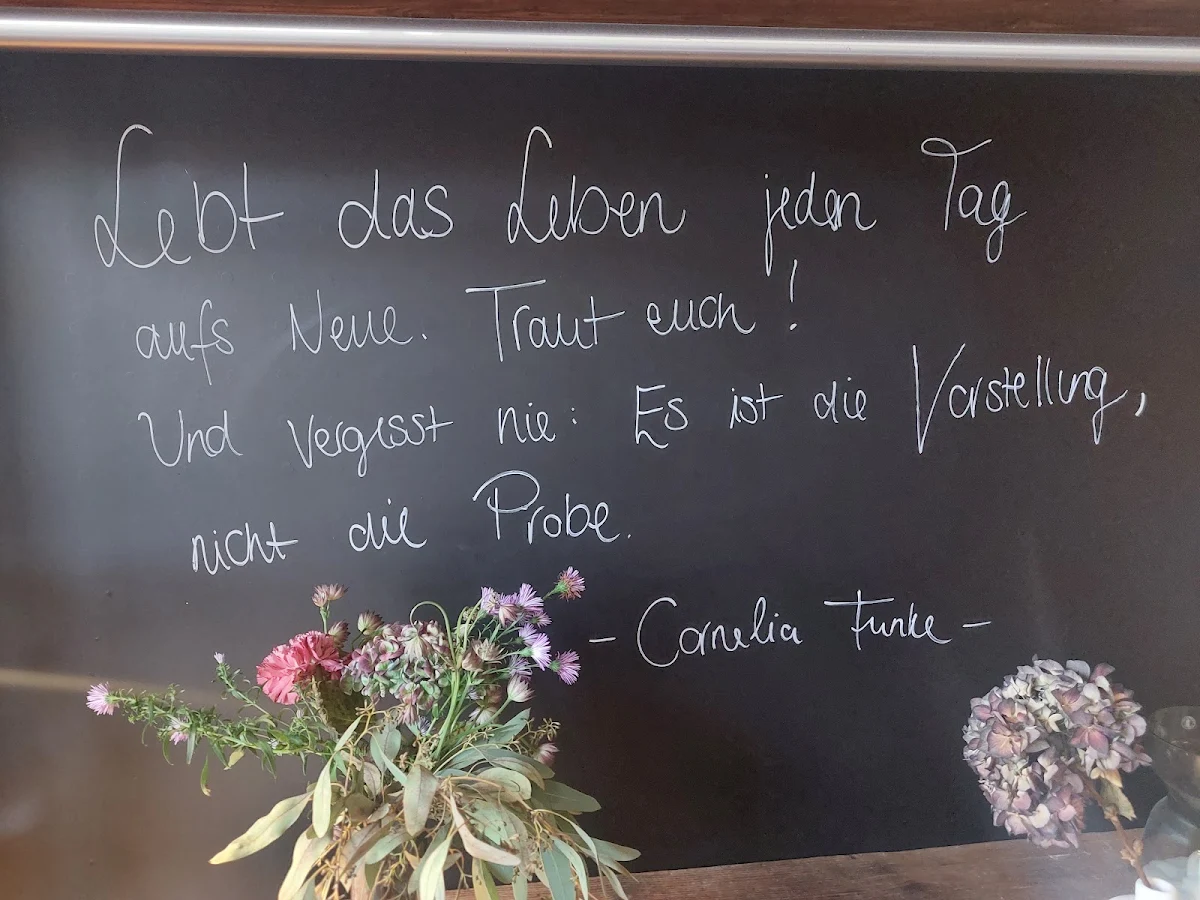 Lebt das Leben jeden Tag
aufs Neue. Traut euch!
Und vergisst nie: Es ist die Vorstellung,
nicht die Probe.
- Cornelia Funke -